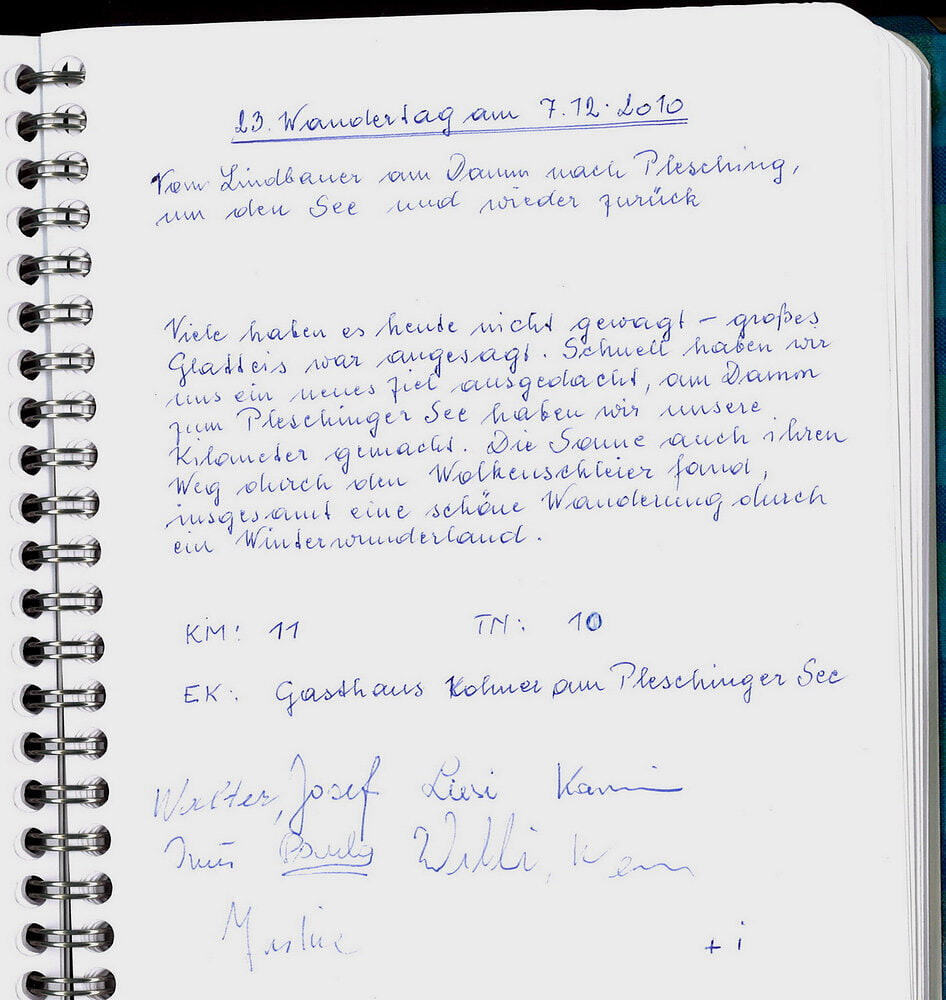 23. Wandertag am 7.12.2010
Vom Lindbauer am Damm nach Plesching,
um den See und wieder zurück
Viele haben es heute nicht gewagt – großes
Glatteis war angesagt. Schnell haben wir
uns ein neues Ziel ausgedacht, am Damm
zum Pleschinger See haben wir unsere
Kilometer gemacht. Die Sonne auch ihren
Weg durch den Wolkenschleier fand,
insgesamt eine schöne Wanderung durch
ein Winterwunderland.
KM: 11 TN: 10
EK: Gasthaus Kolmer am Pleschinger See
Walter, Josef Liesi
Willi,
+ i